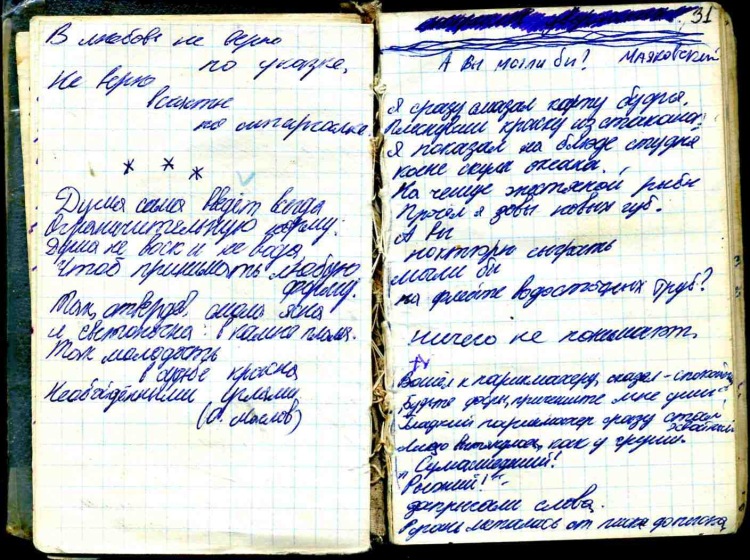 В любови не верю
по указке,
Не верю
по шпаргалке
* * *
Душа сама введёт всегда
Ограничительную норму:
Душа не воск и не вода
Чтоб принимать любую
форму.
Так, отвердев, смола ясна
и светоносна: в камне пламя.
Так молодость
в судьбе красна
углами
Маслов)
31
А вы могли бы? Маяковский
Я сразу смазал карту будня,
Плеснувши краску из стакана;
Я показал на блюде студня
косые скулы океана.
На чешуе жестяной рыбы
Прочёл я зовы новых губ.
А вы
ноктюрн сыграть
могли бы
на флейте водосточных труб?
Ничего не понимают
Вошёл к парикмахеру, сказал - спокойный
Будьте добры, причешите мне уши"
Гладкий парикмахер сразу стал
хвойный
лицо вытянулось, как у груши.
"Сумасшедший!
Рыжий!"
запрыгали слова.
Ругань металась от писка до писка,